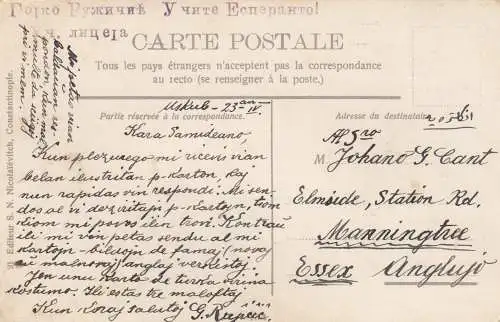 Горко Ружичић Учите Есперанто!
уч. лицеја
CARTE POSTALE
Tous les pays étrangers n'acceptent pas la correspondance
au recto (se renseigner à la poste.)
Partie réservée à la correspondance.
Adresse du destinataire
Editeur S. N. Nicolaïévitch, Constantinople.
Mi petas vian
pri vi mem.
Uskub - 23an IV.
Kara Samideano,
Kun plezurego mi ricevis vian
belan ilustritan p. karton, kaj
nun rapidas vin respondi. Mi sen-
dos al vi deziritajn p-kartojn, tiom
kiom mi povos ilin trovi. Kontraŭ
ili mi vin petas sendu al mi
kartojn - bildojn de famaj, novaj
aŭ malnovaj anglaj verkistoj.
Jen unu karto de turka virina
kostumo. Ili estas tre maloftaj
Kun koraj salutoj G.
M Johano G. Cant
Elmside, Station Rd.
Manningtree
Essex Anglujo